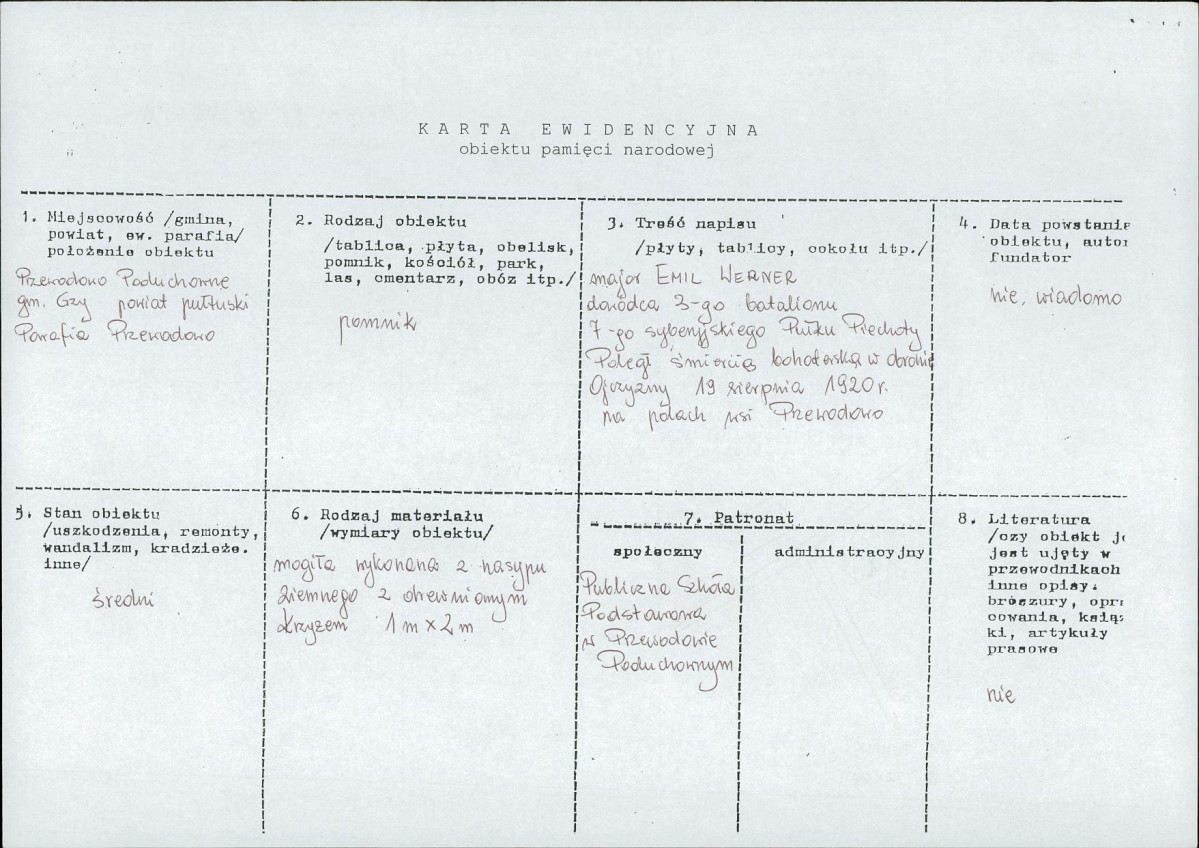 KARTA EWIDENCYJNA
obiektu pamięci narodowej
1. Miejscowość /gmina,
powiat, ew. parafia/
położenie obiektu
Przewodowo Poduchowne
gm. Gzy powiat pułtuski
Parafia Przewodowo
2. Rodzaj obiektu
/tablica, płyta, obelisk,
pomnik, kościół, park,
las, cmentarz, obóz itp./
pomnik
3. Treść napisu
/płyty, tablicy, cokołu itp./
major EMIL WERNER
dowódca 3-go batalionu
7-go syberyjskiego Pułku Piechoty
Poległ śmiercią bohaterską w obronie
Ojczyzny 19 sierpnia 1920 r.
na polach wsi Przewodowo
4. Data powstanie
obiektu, autor
fundator
nie, wiadomo
5. Stan obiektu
/uszkodzenia, remonty,
wandalizm, kradzieże.
inne/
średni
6. Rodzaj materiału
/wymiary obiektu/
mogiła wykonana z nasypu
ziemnego z drewnianym
krzyżem 1 m x 2 m
7. Patronat
społeczny
Publiczna Szkoła
Podstawowa
w Przewodowie
Poduchownym
administracyjny
8. Literatura
/czy obiekt je
jest ujęty w
przewodnikach
inne opisy.
broszury, opra
cowania, książ
ki, artykuły
prasowe
nie